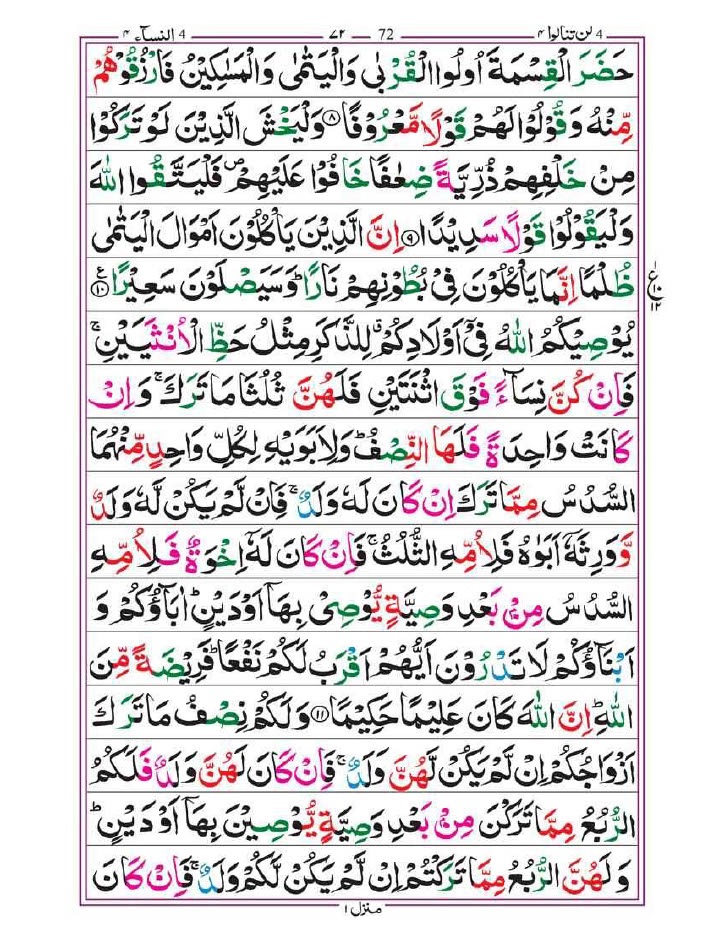 لن تنالوا ۴ 4 72 ۷۲ النسآء ۴ 4
حَضَرَ الۡقِسۡمَةَ اُولُوا الۡقُرۡبٰى وَالۡيَتٰمٰى وَالۡمَسٰكِيۡنُ فَارۡزُقُوۡهُمۡ
مِّنۡهُ وَقُوۡلُوۡا لَهُمۡ قَوۡلًا مَّعۡرُوۡفًا ﴿۸﴾ وَلۡيَخۡشَ الَّذِيۡنَ لَوۡ تَرَكُوۡا
مِنۡ خَلۡفِهِمۡ ذُرِّيَّةً ضِعٰفًا خَافُوۡا عَلَيۡهِمۡ ۖ فَلۡيَتَّقُوا اللّٰهَ
وَلۡيَقُوۡلُوۡا قَوۡلًا سَدِيۡدًا ﴿۹﴾ اِنَّ الَّذِيۡنَ يَاۡكُلُوۡنَ اَمۡوَالَ الۡيَتٰمٰى
ظُلۡمًا اِنَّمَا يَاۡكُلُوۡنَ فِىۡ بُطُوۡنِهِمۡ نَارًا ؕ وَسَيَصۡلَوۡنَ سَعِيۡرًا ﴿۱۰﴾ ع
۱ ع ۱۰ ۱۲
يُوۡصِيۡكُمُ اللّٰهُ فِىۡۤ اَوۡلَادِكُمۡ ۗ لِلذَّكَرِ مِثۡلُ حَظِّ الۡاُنۡثَيَيۡنِ ۚ
فَاِنۡ كُنَّ نِسَآءً فَوۡقَ اثۡنَتَيۡنِ فَلَهُنَّ ثُلُثَا مَا تَرَكَ ۚ وَاِنۡ
كَانَتۡ وَاحِدَةً فَلَهَا النِّصۡفُ ؕ وَلِاَبَوَيۡهِ لِكُلِّ وَاحِدٍ مِّنۡهُمَا
السُّدُسُ مِمَّا تَرَكَ اِنۡ كَانَ لَهٗ وَلَدٌ ۚ فَاِنۡ لَّمۡ يَكُنۡ لَّهٗ وَلَدٌ
وَّوَرِثَهٗۤ اَبَوٰهُ فَلِاُمِّهِ الثُّلُثُ ۚ فَاِنۡ كَانَ لَهٗۤ اِخۡوَةٌ فَلِاُمِّهِ
السُّدُسُ مِنۡۢ بَعۡدِ وَصِيَّةٍ يُّوۡصِىۡ بِهَاۤ اَوۡ دَيۡنٍ ؕ اٰبَآؤُكُمۡ وَ
اَبۡنَآؤُكُمۡ لَا تَدۡرُوۡنَ اَيُّهُمۡ اَقۡرَبُ لَكُمۡ نَفۡعًا ؕ فَرِيۡضَةً مِّنَ
اللّٰهِ ؕ اِنَّ اللّٰهَ كَانَ عَلِيۡمًا حَكِيۡمًا ﴿۱۱﴾ وَلَكُمۡ نِصۡفُ مَا تَرَكَ
اَزۡوَاجُكُمۡ اِنۡ لَّمۡ يَكُنۡ لَّهُنَّ وَلَدٌ ۚ فَاِنۡ كَانَ لَهُنَّ وَلَدٌ فَلَكُمُ
الرُّبُعُ مِمَّا تَرَكۡنَ مِنۡۢ بَعۡدِ وَصِيَّةٍ يُّوۡصِيۡنَ بِهَاۤ اَوۡ دَيۡنٍ ؕ
وَلَهُنَّ الرُّبُعُ مِمَّا تَرَكۡتُمۡ اِنۡ لَّمۡ يَكُنۡ لَّكُمۡ وَلَدٌ ۚ فَاِنۡ كَانَ
منزل ۱